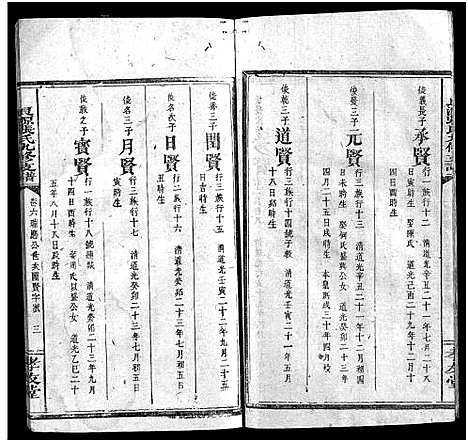 俊義長子 承賢
行一族行十二 清道光辛丑二十一年七月二十八
四日酉時生 娶陳氏 道光己酉二十九年七月十
俊長三子 元賢
行二族行十三 清道光辛丑二十一年九月初五
日未時生 娶何氏盛興公女 道光癸卯二十三年
四月二十五日戌時生
俊乾三子 道賢
行三族行十四 號子敦 清道光壬寅二十二年八月
十八日時生
俊秀三子 閏賢
行三族行十五 清道光壬寅二十二年九月二十五
日吉時生
俊名次子 日賢
行二族行十六 清道光癸卯二十三年七月初五
日時生
俊名三子 月賢
行三族行十七 清道光癸卯二十三年七月初五日
寅時生
俊敬之子 實賢
行一族行十八 清道光癸卯二十三年九月
十四日酉時生 以盛公女 道光乙巳二十
五年八月十八日辰時生
張氏九修支譜
卷六 公世夫圖賢字派 三
孝友堂